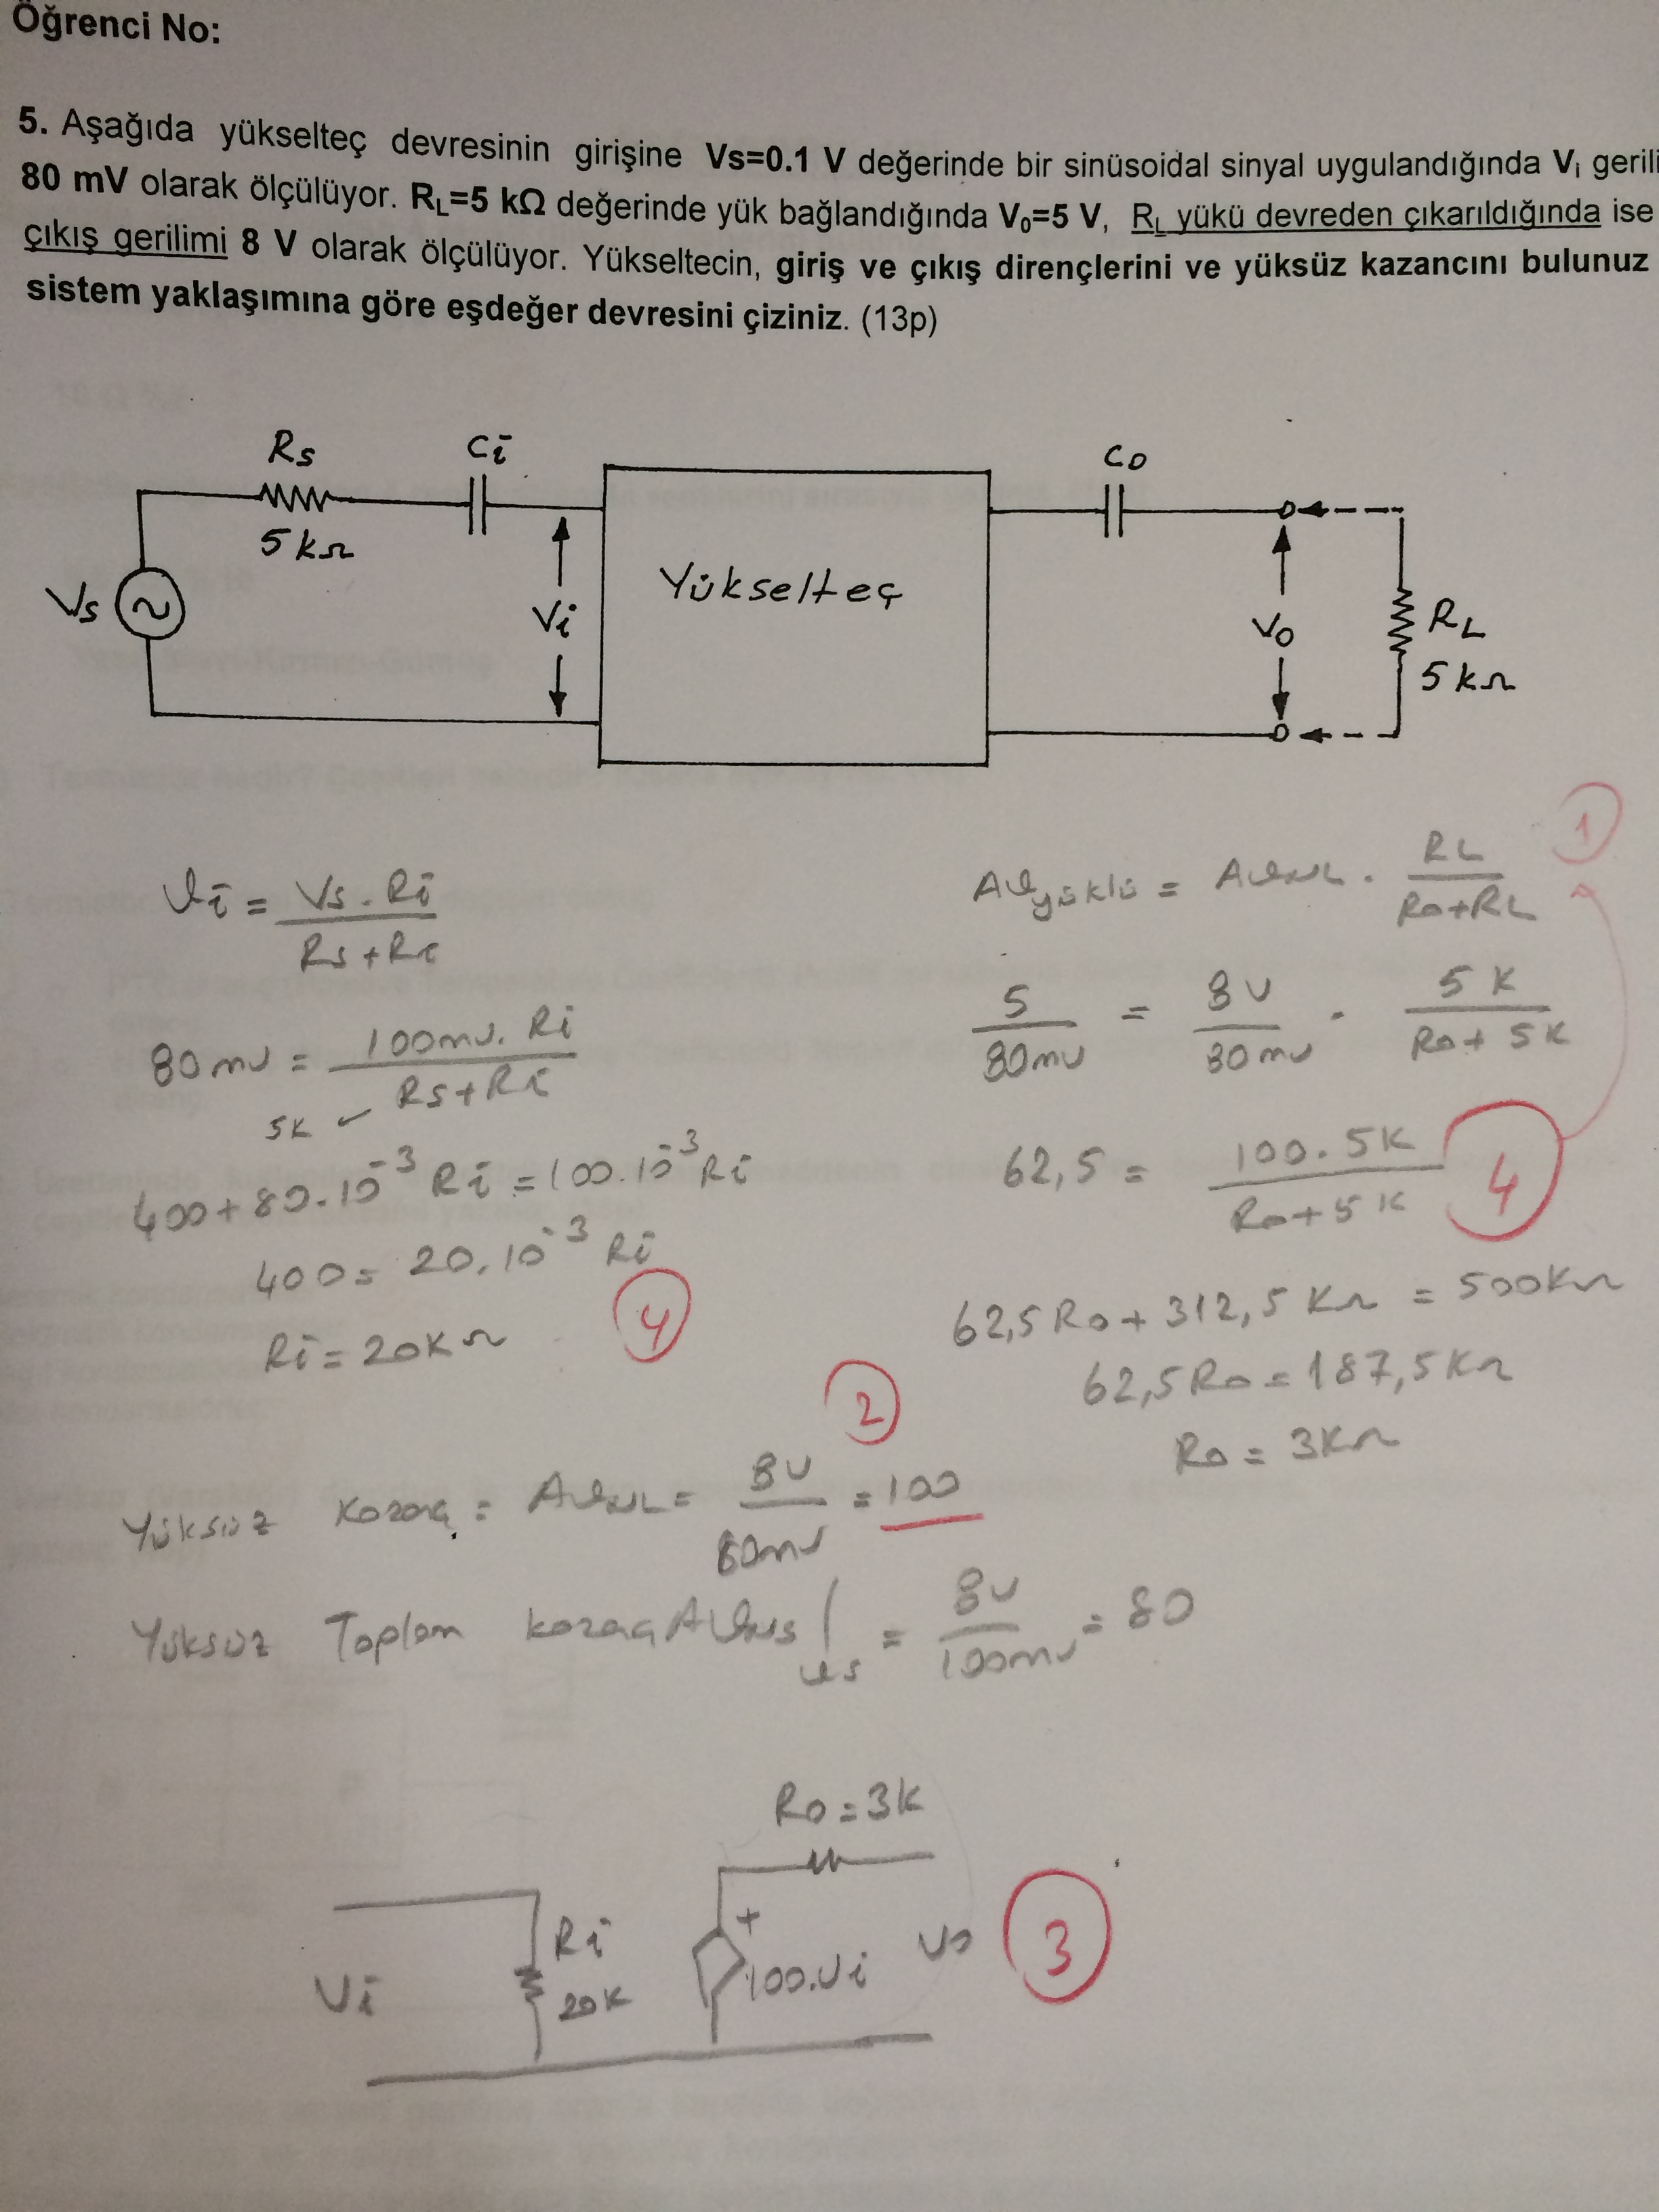 Öğrenci No:
5. Aşağıda yükselteç devresinin girişine Vs=0.1 V değerinde bir sinüsoidal sinyal uygulandığında Vi gerili
80 mV olarak ölçülüyor. RL=5 kΩ değerinde yük bağlandığında V0=5 V, RL yükü devreden çıkarıldığında ise
çıkış gerilimi 8 V olarak ölçülüyor. Yükseltecin, giriş ve çıkış dirençlerini ve yüksüz kazancını bulunuz
sistem yaklaşımına göre eşdeğer devresini çiziniz. (13p)
Rs
Ci
Co
5 kΩ
Vs
Vi
Yükselteç
Vo
RL
5 kΩ
Vi = Vs . Ri / Rs + Ri
80 mV = 100mV. Ri / Rs + Ri
5K
400 + 80.10^-3 Ri = 100.10^-3 Ri
400 = 20.10^-3 Ri
Ri = 20K Ω
4
1
AVyüklü = AVNL . RL / Ro+RL
5 / 80mV = 8V / 80mV . 5K / Ro + 5K
62,5 = 100. 5K / Ro + 5K
4
62,5 Ro + 312,5 KΩ = 500KΩ
62,5 Ro = 187,5 KΩ
Ro = 3KΩ
2
Yüksüz kazanç = AVNL = 8V / 80mV = 100
Yüksüz Toplam kazanç = 8V / 100mV = 80
Ro = 3K
Vi
Ri
20K
+
100.Vi
Vo
3